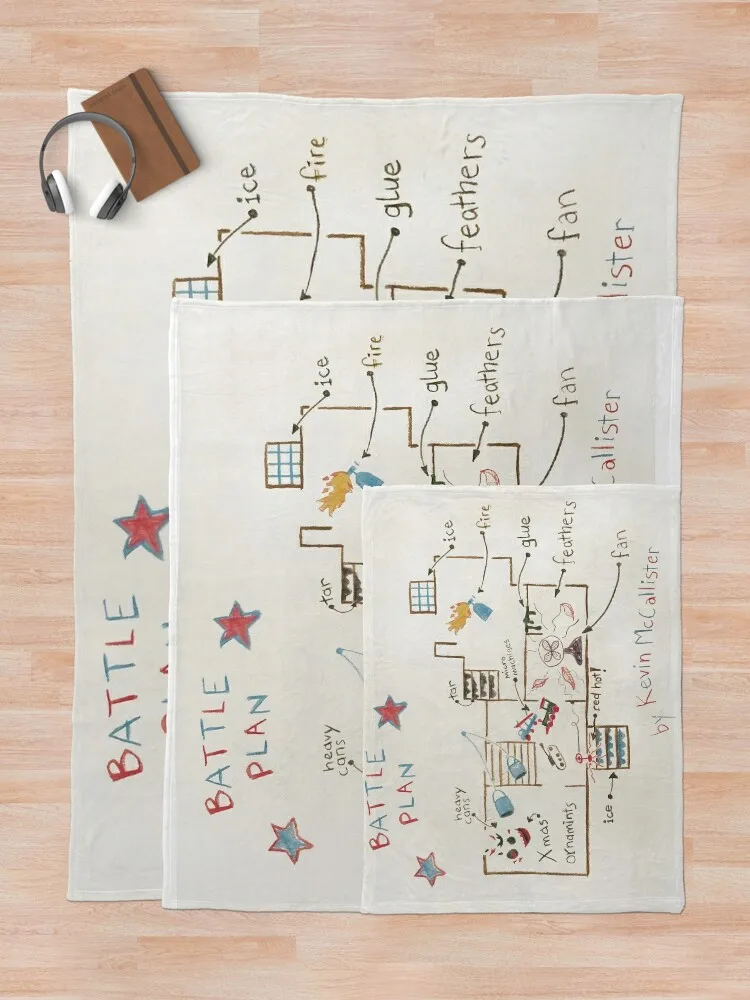 ice
fire
glue
feathers
fan
lister
BATTLE
ice
fire
glue
feathers
fan
Callister
tar
BATTLE
PLAN
heavy
cans
ice
fire
glue
feathers
fan
tar
micro
machines
red hot!
BATTLE
PLAN
heavy
cans
Xmas
ornamints
ice
by Kevin McCallister